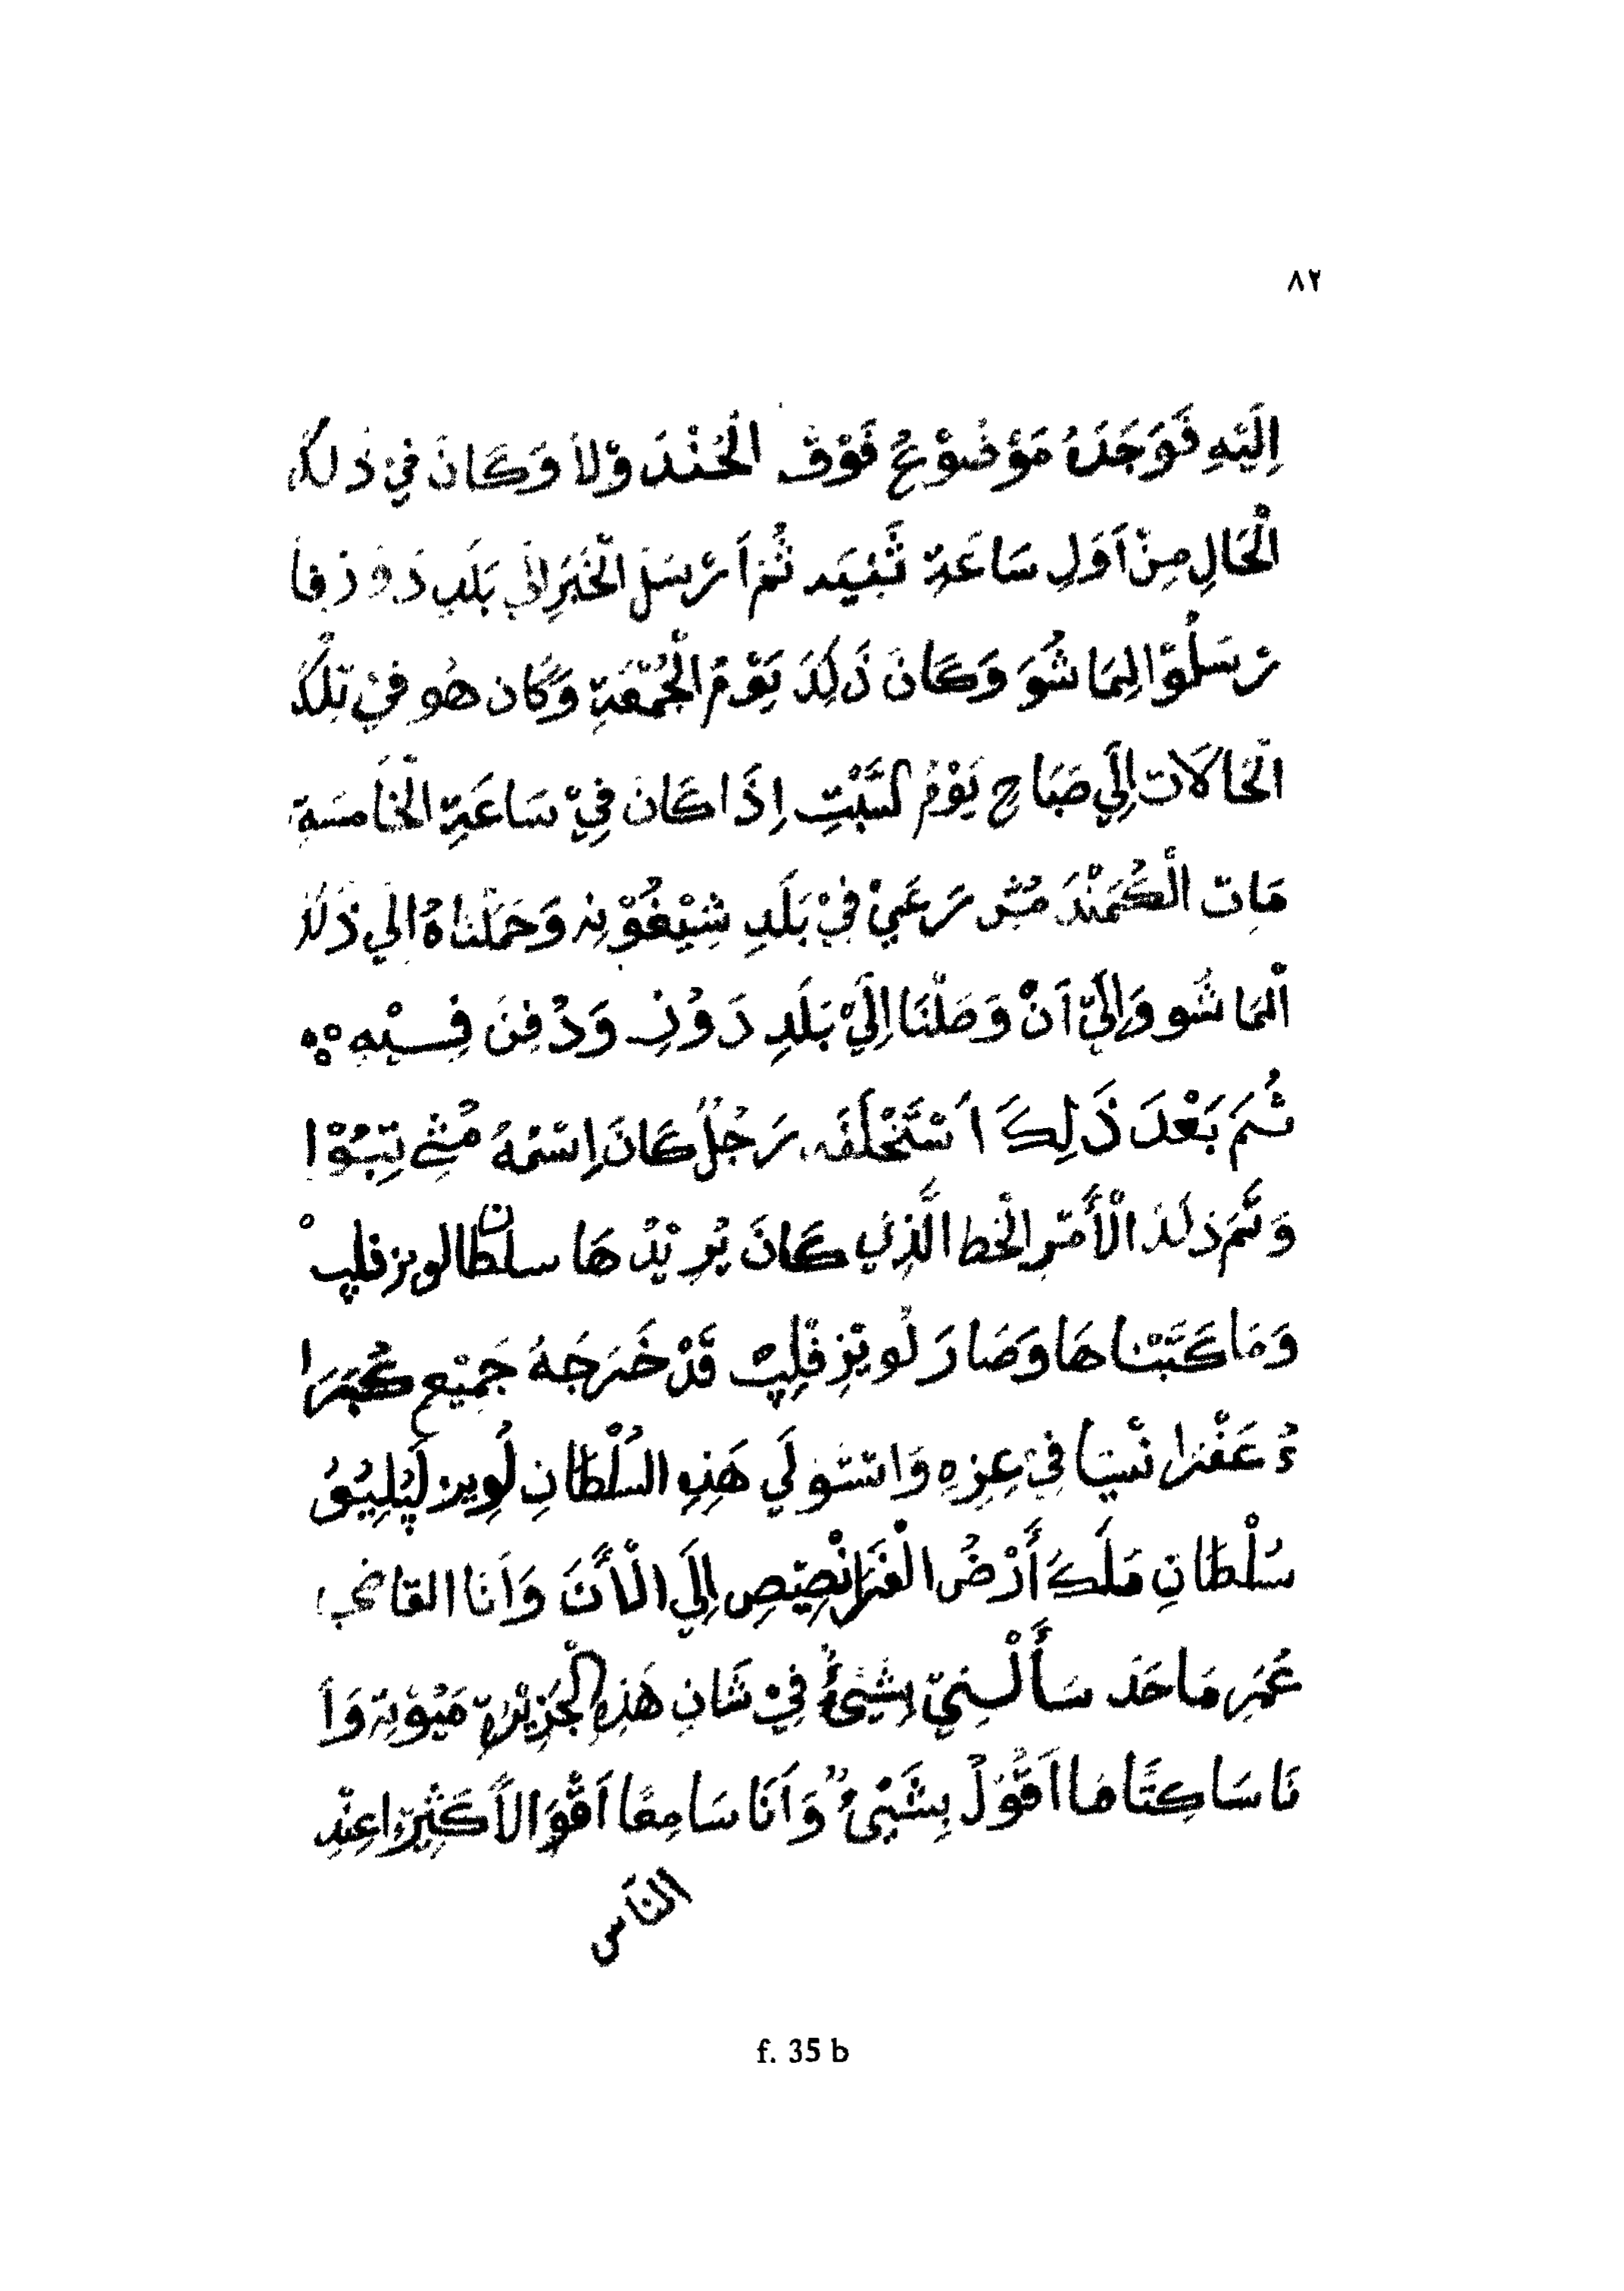 ٨٢
اِلَيْهِ فَوَجَدَهُ مَوْضُوْعٌ فَوْقَ الْخُنْدَ وْلاَ وَكَانَ فِيْ ذٰلِكَ
الْحَالِ مِنْ اَوَلِ سَاعَةِ ثُمَّ اَرْسَلَ الْخَبَرِ اِلٰي بَلَدِ دَوُزِ فا
رْسَلُوْا لِمَاشُوَ وَكَانَ ذَلِكَ يَوْمُ الْجُمْعَةِ وَكَان هُو فِيْ تِلْكَ
الْحَالَات اِلَي صَبَاحِ يَوْمُ لسَّبْتِ اِذَا كَانَ فِيْ سَاعَةِ الْخَامسَةِ
مَات الْكُمَنْدَ مُسْ رَعَيْ فِيْ بَلَدِ شِيْغُوْنِ وَحَمَلْنَاهُ اِلَي ذَلك
الْمَاشُو وَاِلَيّ اَنْ وَصَلْنَا اِلَيْ بَلَدِ دَوُنِ وَدُفِنَ فِيْهِ
ثُمَ بَعْدَ ذَلِكَ اَسْتَخْلَفَه رَجُلٌ كَانَ اِسْمُهُ مُشِے تِبُوْا
وَتَمَ ذلكَ الْأَمْرِ الْخط الَّذِي كَانَ يُرِيْدُ هَا سلطان لويز فليپْ
وَمَا كَتَبْنَا هَا وَصَارَ لُويْزِ فْلِيپْ قَدْ خَرَجَهُ جَمِيْعِ كُبَرَا
ءُ عَفْرَا نْسِيَا فِيْ عِزِهِ وَاسْتَوْلَي هَذِهِ السُلْطَانِ لُوِيز لَپُلِيُوُ
سُلْطَانِ مَلَكَ أَرْضُ الْفَرَانْصِيْصِ اِلَي الْأَنَ وَاَنَا القاضي
عُمَرِ مَا حَدَ سَأَلْنِيّ بِشَيْءٌ فِيْ شَانِ هَذِهِ الْجَزِيْرَةِ مَيُوْتة وَاَ
نَا سَاكِتًا مَا اَقُوْلُ بِشَيْءٌ وَاَنَا سَامِعًا اَقْوَالاً كَثِيْرًا عِنْدِ
النَاس
f. 35 b